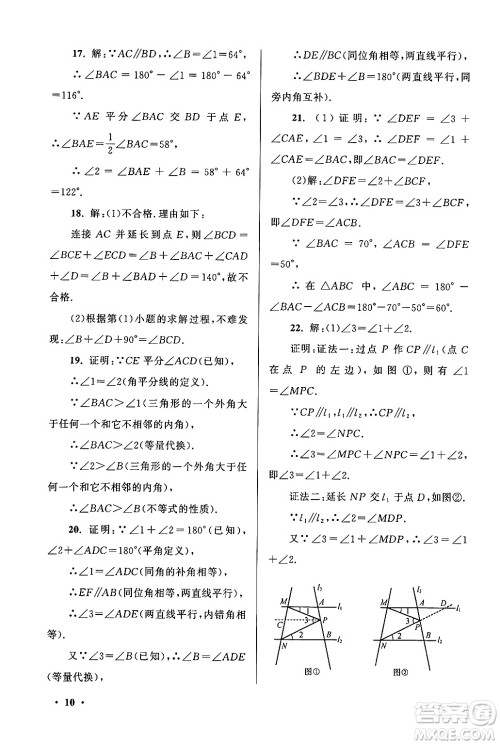 17. 解：∵AC∥BD，∴∠B＝∠1＝64°，
∴∠BAC＝180°－∠1＝180°－64°
＝116°.
∵AE 平分∠BAC 交 BD 于点 E，
∴∠BAE＝1/2∠BAC＝58°，
∴∠2＝∠BAE＋∠B＝58°＋64°＝
122°.
18. 解：(1)不合格. 理由如下：
连接 AC 并延长到点 E，则∠BCD＝
∠BCE＋∠DCE＝∠B＋∠BAC＋∠CAD
＋∠D＝∠B＋∠BAD＋∠D＝140°，故不
合格.
(2)根据第(1)小题的求解过程，不难发
现：∠B＋∠D＋90°＝∠BCD.
19. 证明：∵CE 平分∠ACD(已知)，
∴∠1＝∠2(角平分线的定义).
∵∠BAC＞∠1(三角形的一个外角大于
任何一个和它不相邻的内角)，
∴∠BAC＞∠2(等量代换).
∵∠2＞∠B(三角形的一个外角大于任何
一个和它不相邻的内角)，
∴∠BAC＞∠B(不等式的性质).
20. 证明：∵∠1＋∠2＝180°(已知)，
∠2＋∠ADC＝180°(平角定义)，
∴∠1＝∠ADC(同角的补角相等)，
∴EF∥AB(同位角相等，两直线平行)，
∴∠3＝∠ADE(两直线平行，内错角相
等).
又∵∠3＝∠B(已知)，∴∠B＝∠ADE
(等量代换)，
· 10 ·
∴DE∥BC(同位角相等，两直线平行)，
∴∠DEC＋∠C＝180°(两直线平行，同
旁内角互补).
21. (1)证明：∵∠DEF＝∠3＋
∠CAE，∠2＝∠3，∴∠DEF＝∠2＋
∠CAE，即∠BAC＝∠DEF.
(2)解：∵∠DFE＝∠1＋∠BCF，
∠1＝∠3，∴∠DFE＝∠3＋∠BCF，
即∠DFE＝∠ACB.
∵∠BAC＝70°，∠DFE＝50°，∴∠ACB
＝50°，
∴在△ABC 中，∠ABC＝180°－∠BAC
－∠ACB＝180°－70°－50°＝60°.
22. 解：(1)∠3＝∠1＋∠2.
证明：证法一：过点 P 作 CP∥l₁(点 C
在点 P 的左边)，如图①，则有∠1
＝∠MPC.
∵CP∥l₁，l₁∥l₂，∴CP∥l₂，
∴∠2＝∠NPC，
∴∠3＝∠MPC＋∠NPC＝∠1＋∠2，
即∠3＝∠1＋∠2.
证法二：延长 NP 交 l₁于点 D，如图②.
∵l₁∥l₂，∴∠2＝∠MDP.
又∵∠3＝∠1＋∠MDP，∴∠3＝∠1
＋∠2.
l₃
M
A
1
l₁
C
3
P
2
B
N
l₂
图①
l₃
M
A
D
1
l₁
3
P
2
B
N
l₂
图②